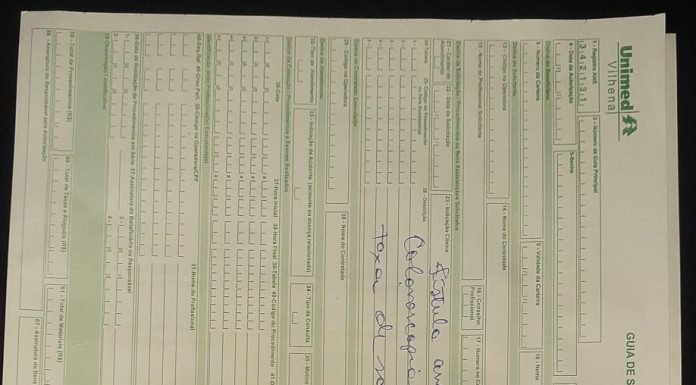 Unimed
Vilhena
GUIA DE S
1 - Registro ANS
3 4 2 1 3 1
3 - Número da Guia Principal
4 - Data da Autorização
5 - Senha
Dados do Beneficiário
8 - Número da Carteira
9 - Validade da Carteira
10 - Nome
Dados do Solicitante
13 - Código na Operadora
14 - Nome do Contratado
15 - Nome do Profissional Solicitante
16 - Conselho Profissional
17 - Número no C
Dados da Solicitação / Procedimentos ou Itens Assistenciais Solicitados
21 - Caráter do Atendimento
22 - Data da Solicitação
23 - Indicação Clínica
Fístula an
24-Tabela
25 - Código do Procedimento ou Item Assistencial
26 - Descrição
Colonoscopia
taxa de sa
Dados do Contratado Executante
29 - Código na Operadora
30 - Nome do Contratado
Dados do Atendimento
32 - Tipo de Atendimento
33 - Indicação de Acidente (acidente ou doença relacionada)
34 - Tipo de Consulta
35 - Motivo
Dados da Execução / Procedimentos e Exames Realizados
36-Data
37-Hora Inicial
38-Hora Final
39-Tabela
40-Código do Procedimento
41-D
Identificação do(s) Profissional(is) Executante(s)
48-Seq.Ref
49-Grau Part.
50-Código na Operadora/CPF
51-Nome do Profissional
56-Data de Realização de Procedimentos em Série
57-Assinatura do Beneficiário ou Responsável
58-Observação / Justificativa
59 - Total de Procedimentos (R$)
60 - Total de Taxas e Aluguéis (R$)
61 - Total de Materiais (R$)
66 - Assinatura do Responsável pela Autorização
67 - Assinatura do Bene